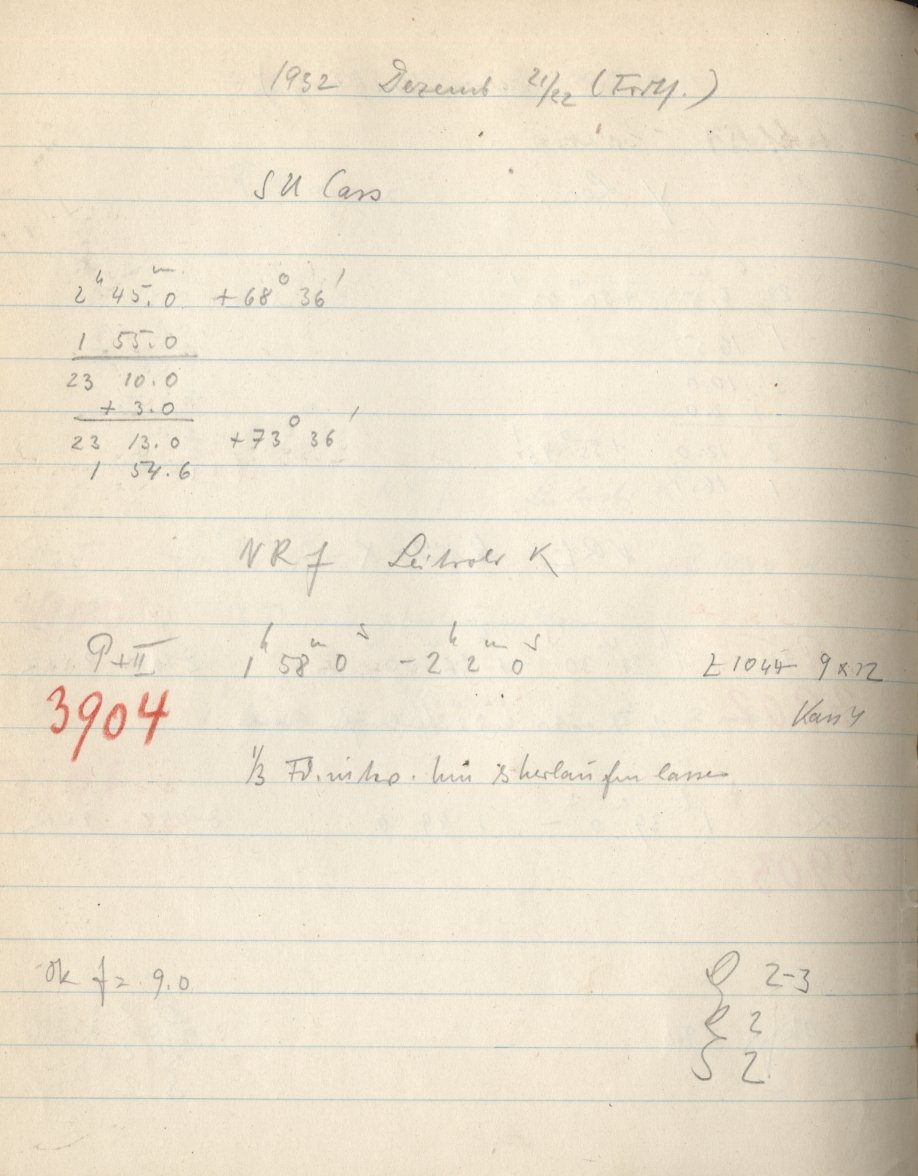 1932 Dezemb 21/22 (Forts.)
SU Cass
2h 45.m0 +68° 36'
1 55.0
23 10.0
+ 3.0
23 13.0 +73° 36'
1 54.6
VRf Leitrohr K
P+II 1h 58m 0s - 2h 2m 0s Z1044 9x12
3904
1/3 hin & herlaufen lassen
Ok f= 9.0
2-3
2
S 2